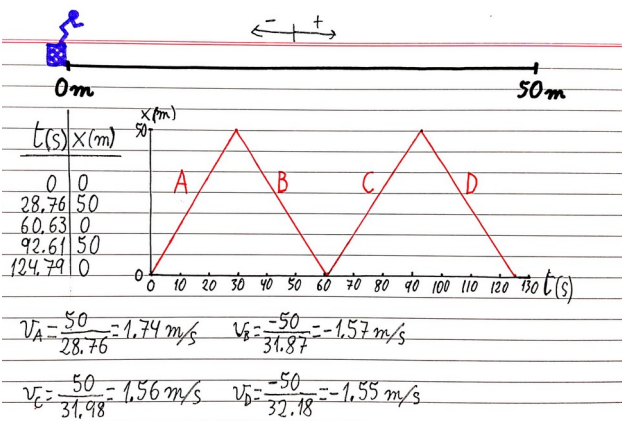 - +
0m 50m
t(s) x(m)
0 0
28.76 50
60.63 0
92.61 50
124.79 0
x(m)
50
A B C D
0
0 10 20 30 40 50 60 70 80 90 100 110 120 130 t(s)
v_A = 50/28.76 = 1.74 m/s v_B = -50/31.87 = -1.57 m/s
v_C = 50/31.98 = 1.56 m/s v_D = -50/32.18 = -1.55 m/s